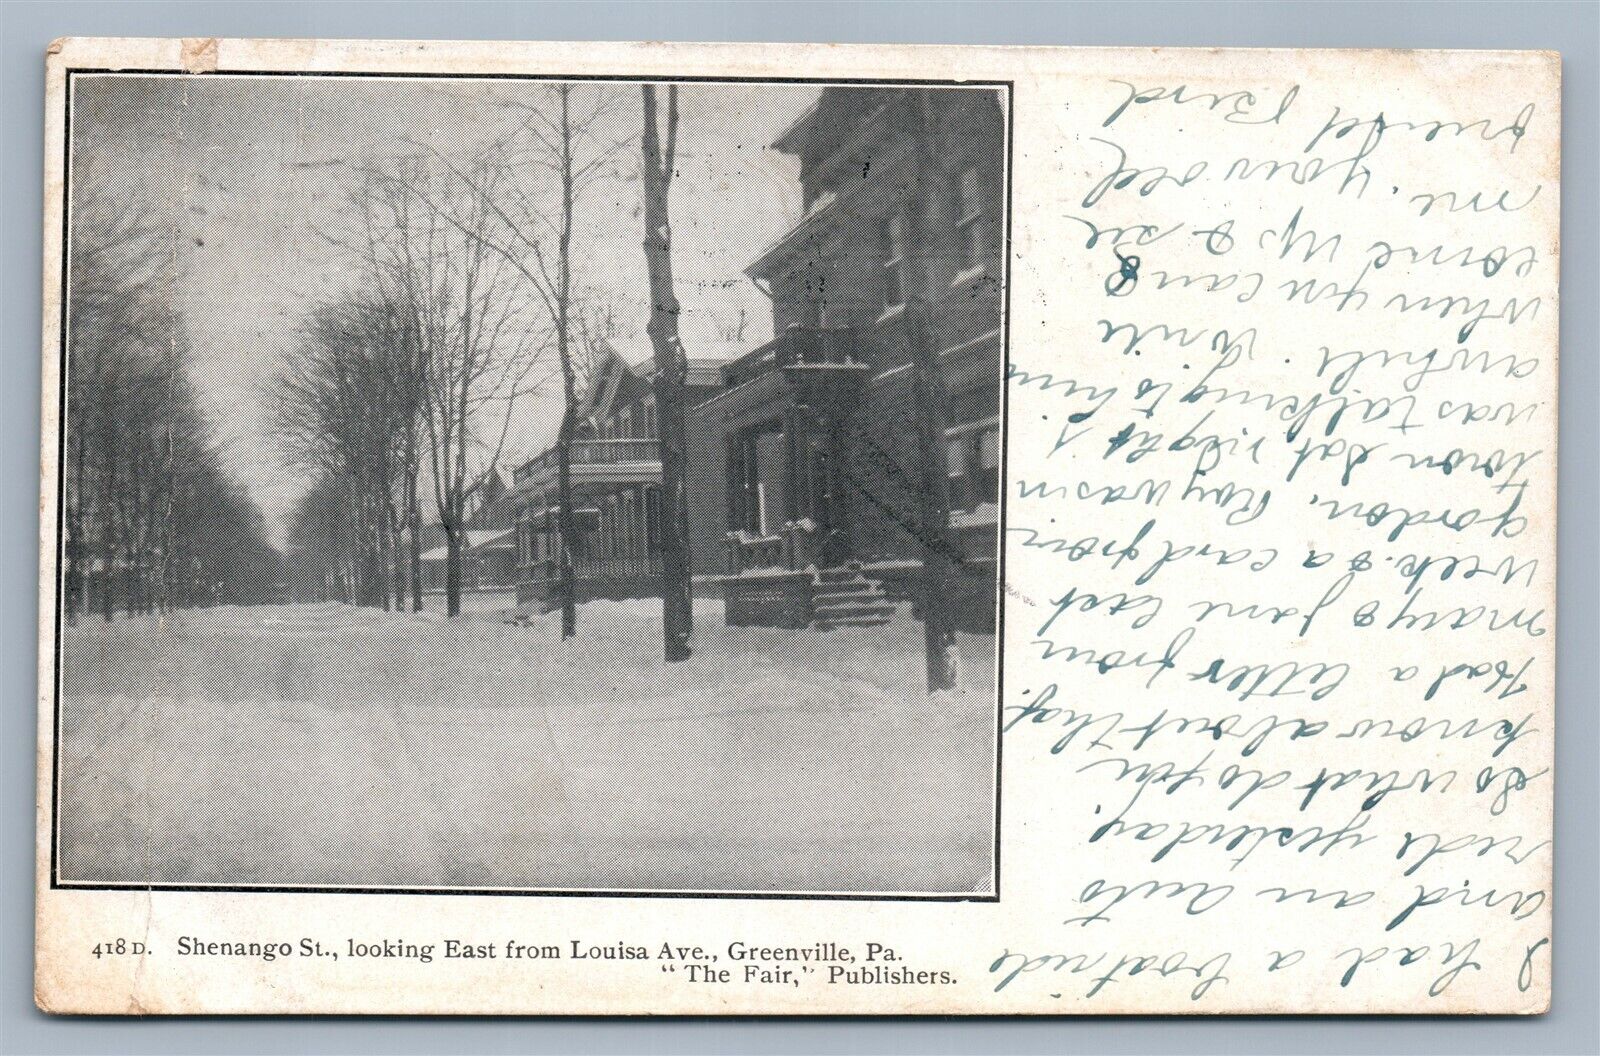 418 D. Shenango St., looking East from Louisa Ave., Greenville, Pa.
"The Fair," Publishers.
I had a boat ride
and an auto
ride yesterday.
So what do you
know about that.
Had a letter from
Mary & Jane last
week & a card from
Gordon. Roy was in
town Sat night I
was talking to him
awhile. Write
when you can &
come up & see
me. Your old
friend